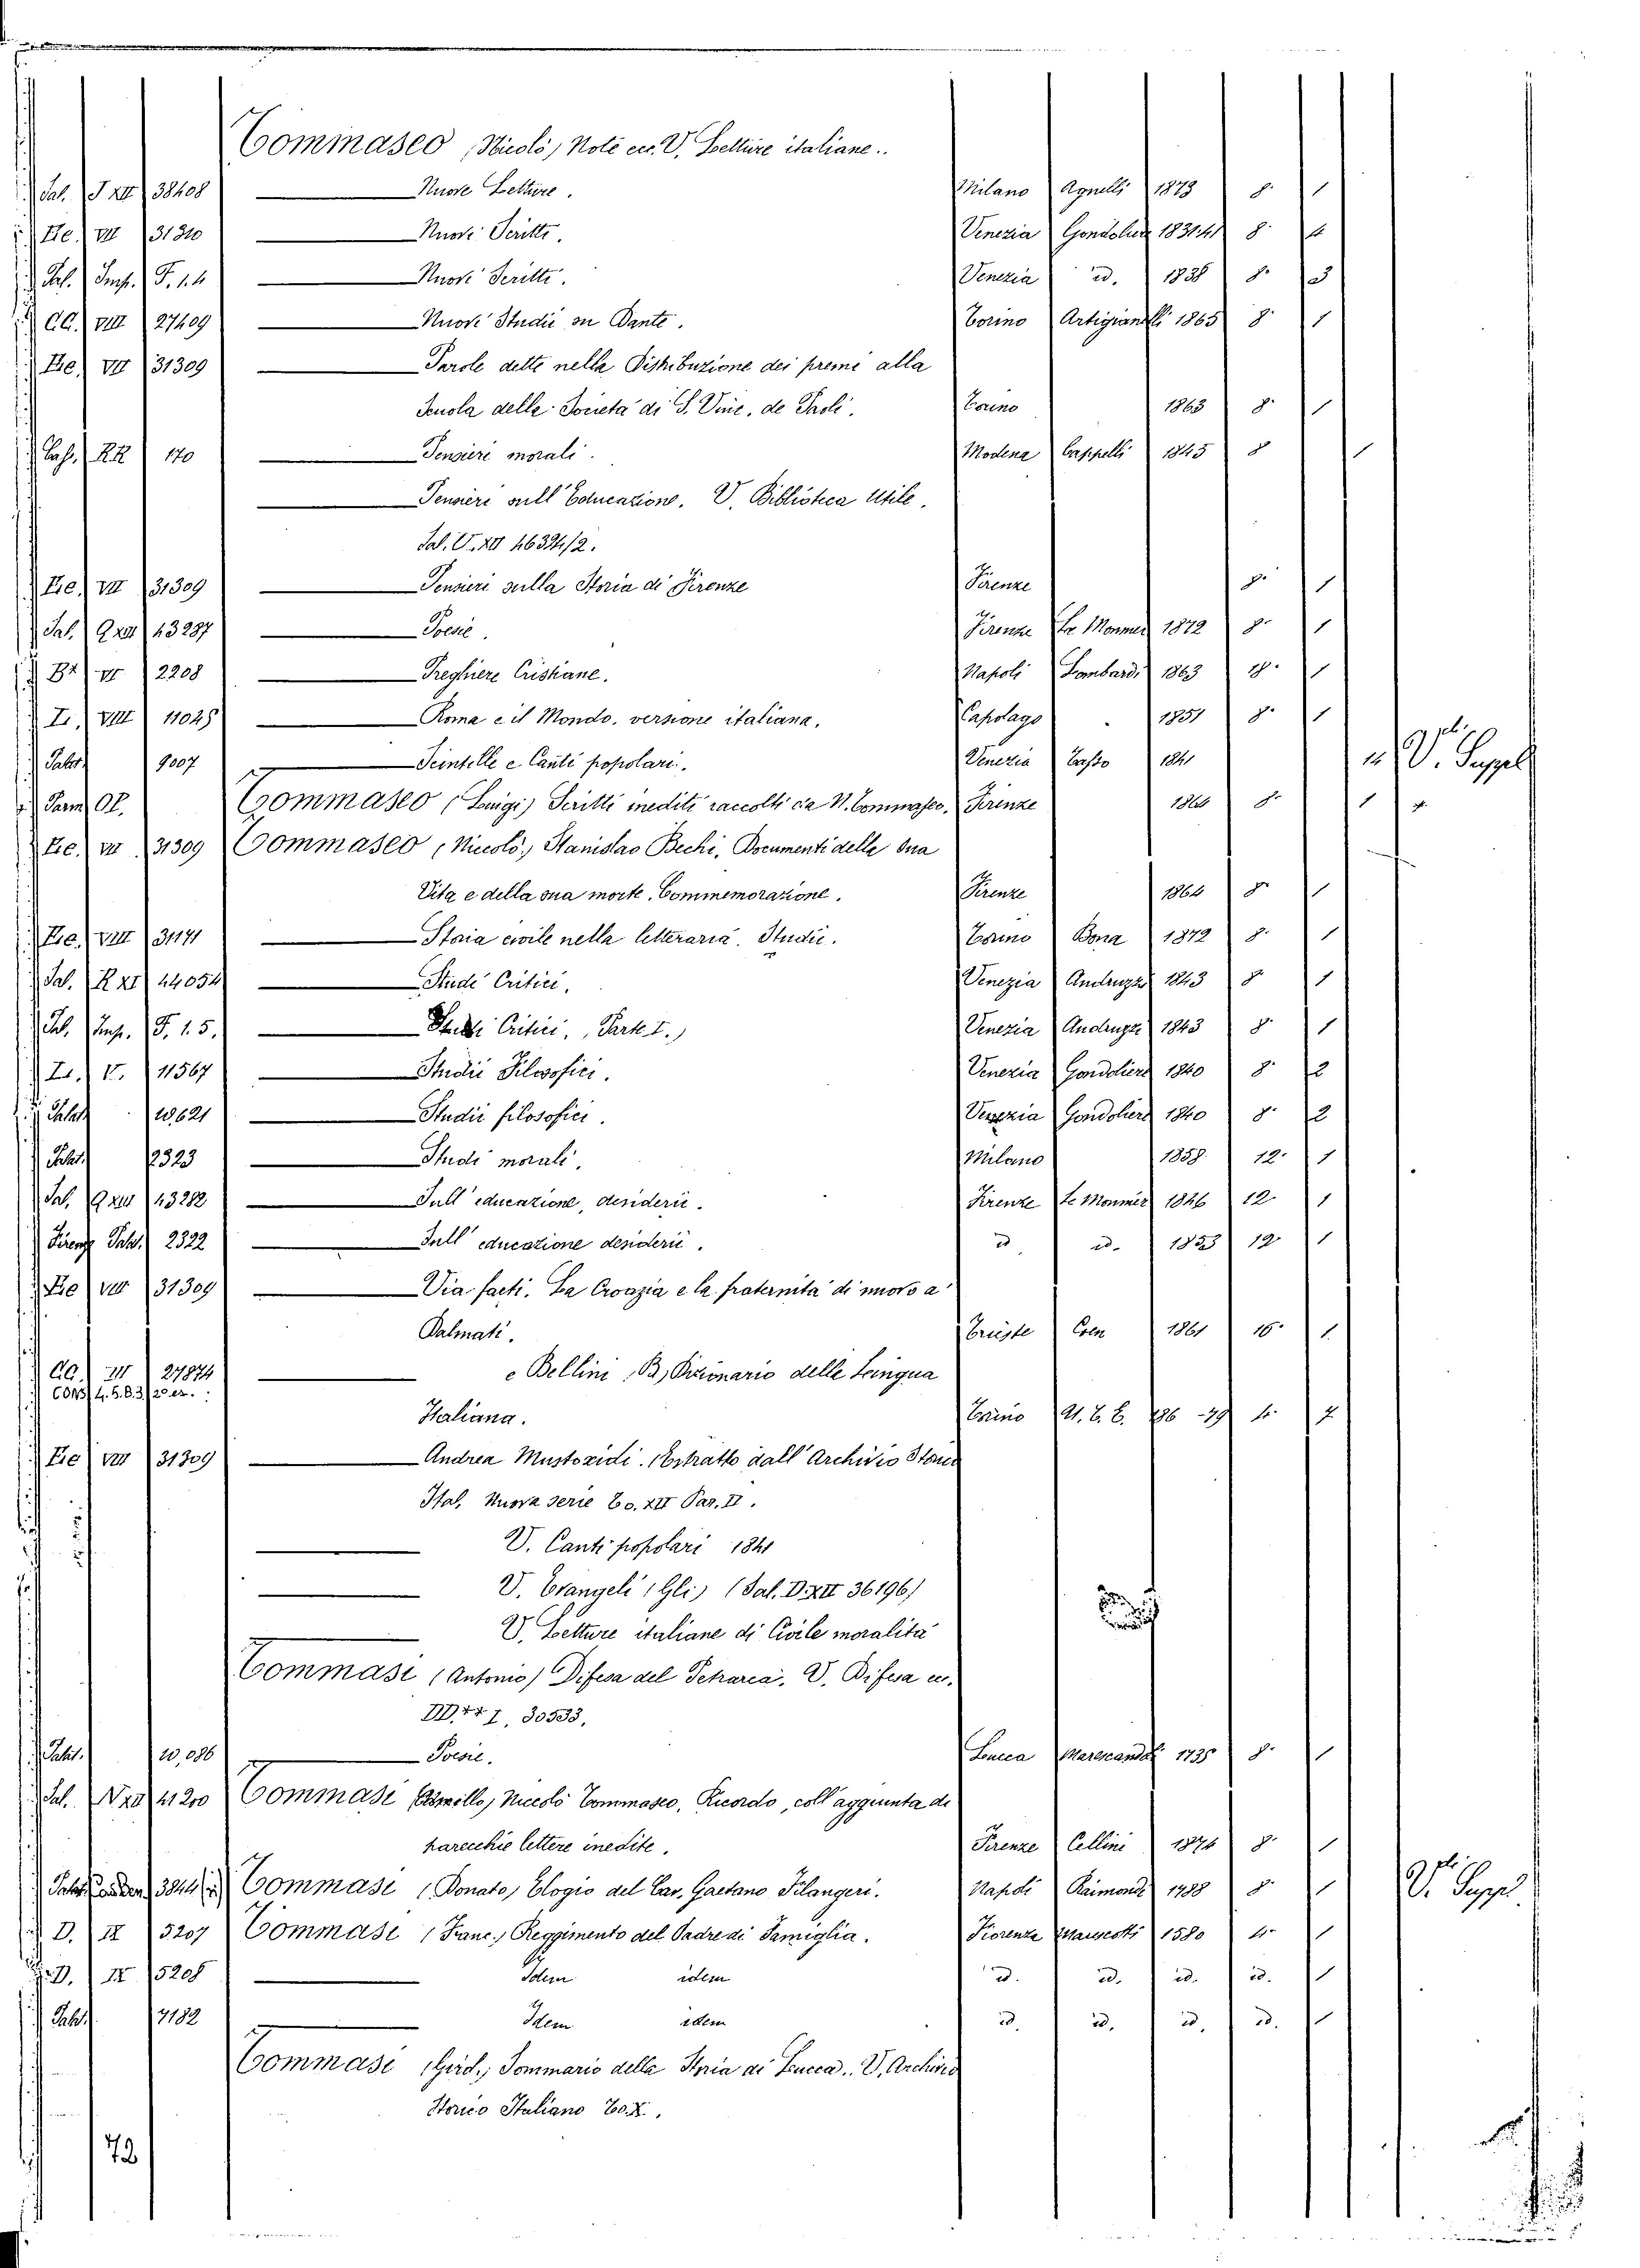 Tommaseo (Nicolò) Note ecc. V. Letture italiane.
Sal. J XII 38408 Nuove Letture. Milano Agnelli 1873 8. 1
Ee. VII 31310 Nuovi Scritti. Venezia Gondoliere 183141 8. 4
Sal. Imp. F. 14 Nuovi Scritti. Venezia id. 1838 8. 3
CC. VIII 27409 Nuovi Studii su Dante. Torino Artigianelli 1865 8. 1
Ee. VII 31309 Parole dette nella Distribuzione dei premi alla
Scuola della Società di S. Vinc. de Paoli. Torino 1863 8. 1
RR 170 Pensieri morali. Modena Cappelli 1845 8 1
Pensieri sull'Educazione. V. Biblioteca Utile.
Sal. V. XII 46324/2.
Ee. VII 31309 Pensieri sulla Storia di Firenze Firenze 8. 1
Sal. Q XII 43287 Poesie. Firenze Le Monnier 1872 8. 1
VI 2208 Preghiere Cristiane. Napoli Lombardi 1863 18. 1
I. VIII 11025 Roma e il Mondo. versione italiana. Capolago 1851 8. 1
Palat. 9007 Scintelle e Canti popolari. Venezia Tasso 1841 V. Suppl
Tommaseo (Luigi) Scritti inediti raccolti da N. Tommaseo. Firenze 8. 1
Ee. VII 31309 Tommaseo (Nicolò) Stanislao Bechi, Documenti della sua
Vita e della sua morte. Commemorazione. Firenze 1864 8. 1
Ee. VIII 31171 Storia civile nella letteraria. Studii. Torino Bona 1872 8. 1
Sal. R XI 44054 Studi Critici. Venezia Andruzzi 1843 8. 1
Sal. Imp. F. 15. Studi Critici. (Parte I.) Venezia Andruzzi 1843 8. 1
V. 11567 Studii Filosofici. Venezia Gondoliere 1840 8. 2
Palat. 10,621 Studii filosofici. Venezia Gondoliere 1840 8. 2
Palat. 12323 Studi morali. Milano 1858. 12. 1
Sal. Q XII 43282 Sull'educazione, desiderii. Firenze Le Monnier 1846 12. 1
Palat. 2322 Sull'educazione desiderii. id id. 12 1
Ee VII 31309 Via facti. La Croazia e la fraternità di nuovo a'
Dalmati. Trieste Coen 1861 16. 1.
CC. III 27874 e Bellini (B) Dizionario della Lingua
CONS. 4.5.B.3/20
Italiana. Torino U. T. E. 4. 7
Ee VII 31309 Andrea Mustoxidi. (Estratto dall'Archivio Storico
Ital. Nuova serie To. XII Par. II.
V. Canti popolari 1841
V. Evangeli (Gli) (Sal. D. XII 36196)
V. Letture italiane di Civile moralità
Tommasi (Antonio) Difesa del Petrarca. V. Difesa ec.
I. 30533.
Palat. 10,086 Poesie. Lucca Marescandoli 1735 8. 1
Sal. N XII 41200 Tommasi (Camillo) Niccolò Tommaseo, Ricordo, coll'aggiunta di
parecchie lettere inedite. Firenze Cellini 1874 8. 1
Palat. Tommasi (Donato) Elogio del Cav. Gaetano Filangeri. Napoli Raimondi 1788 8. 1 V. Suppl.
D. IX 5207 Tommasi (Franc.) Reggimento del Padre di Famiglia. Fiorenza Marescotti 1580 4. 1
D. IX 5208 Idem idem id. id. id. id. 1
Palat. 7182 Idem idem id. id. id. id. 1
Tommasi (Girol.) Sommario della Storia di Lucca. V. Archivio
Storico Italiano To. X.
72